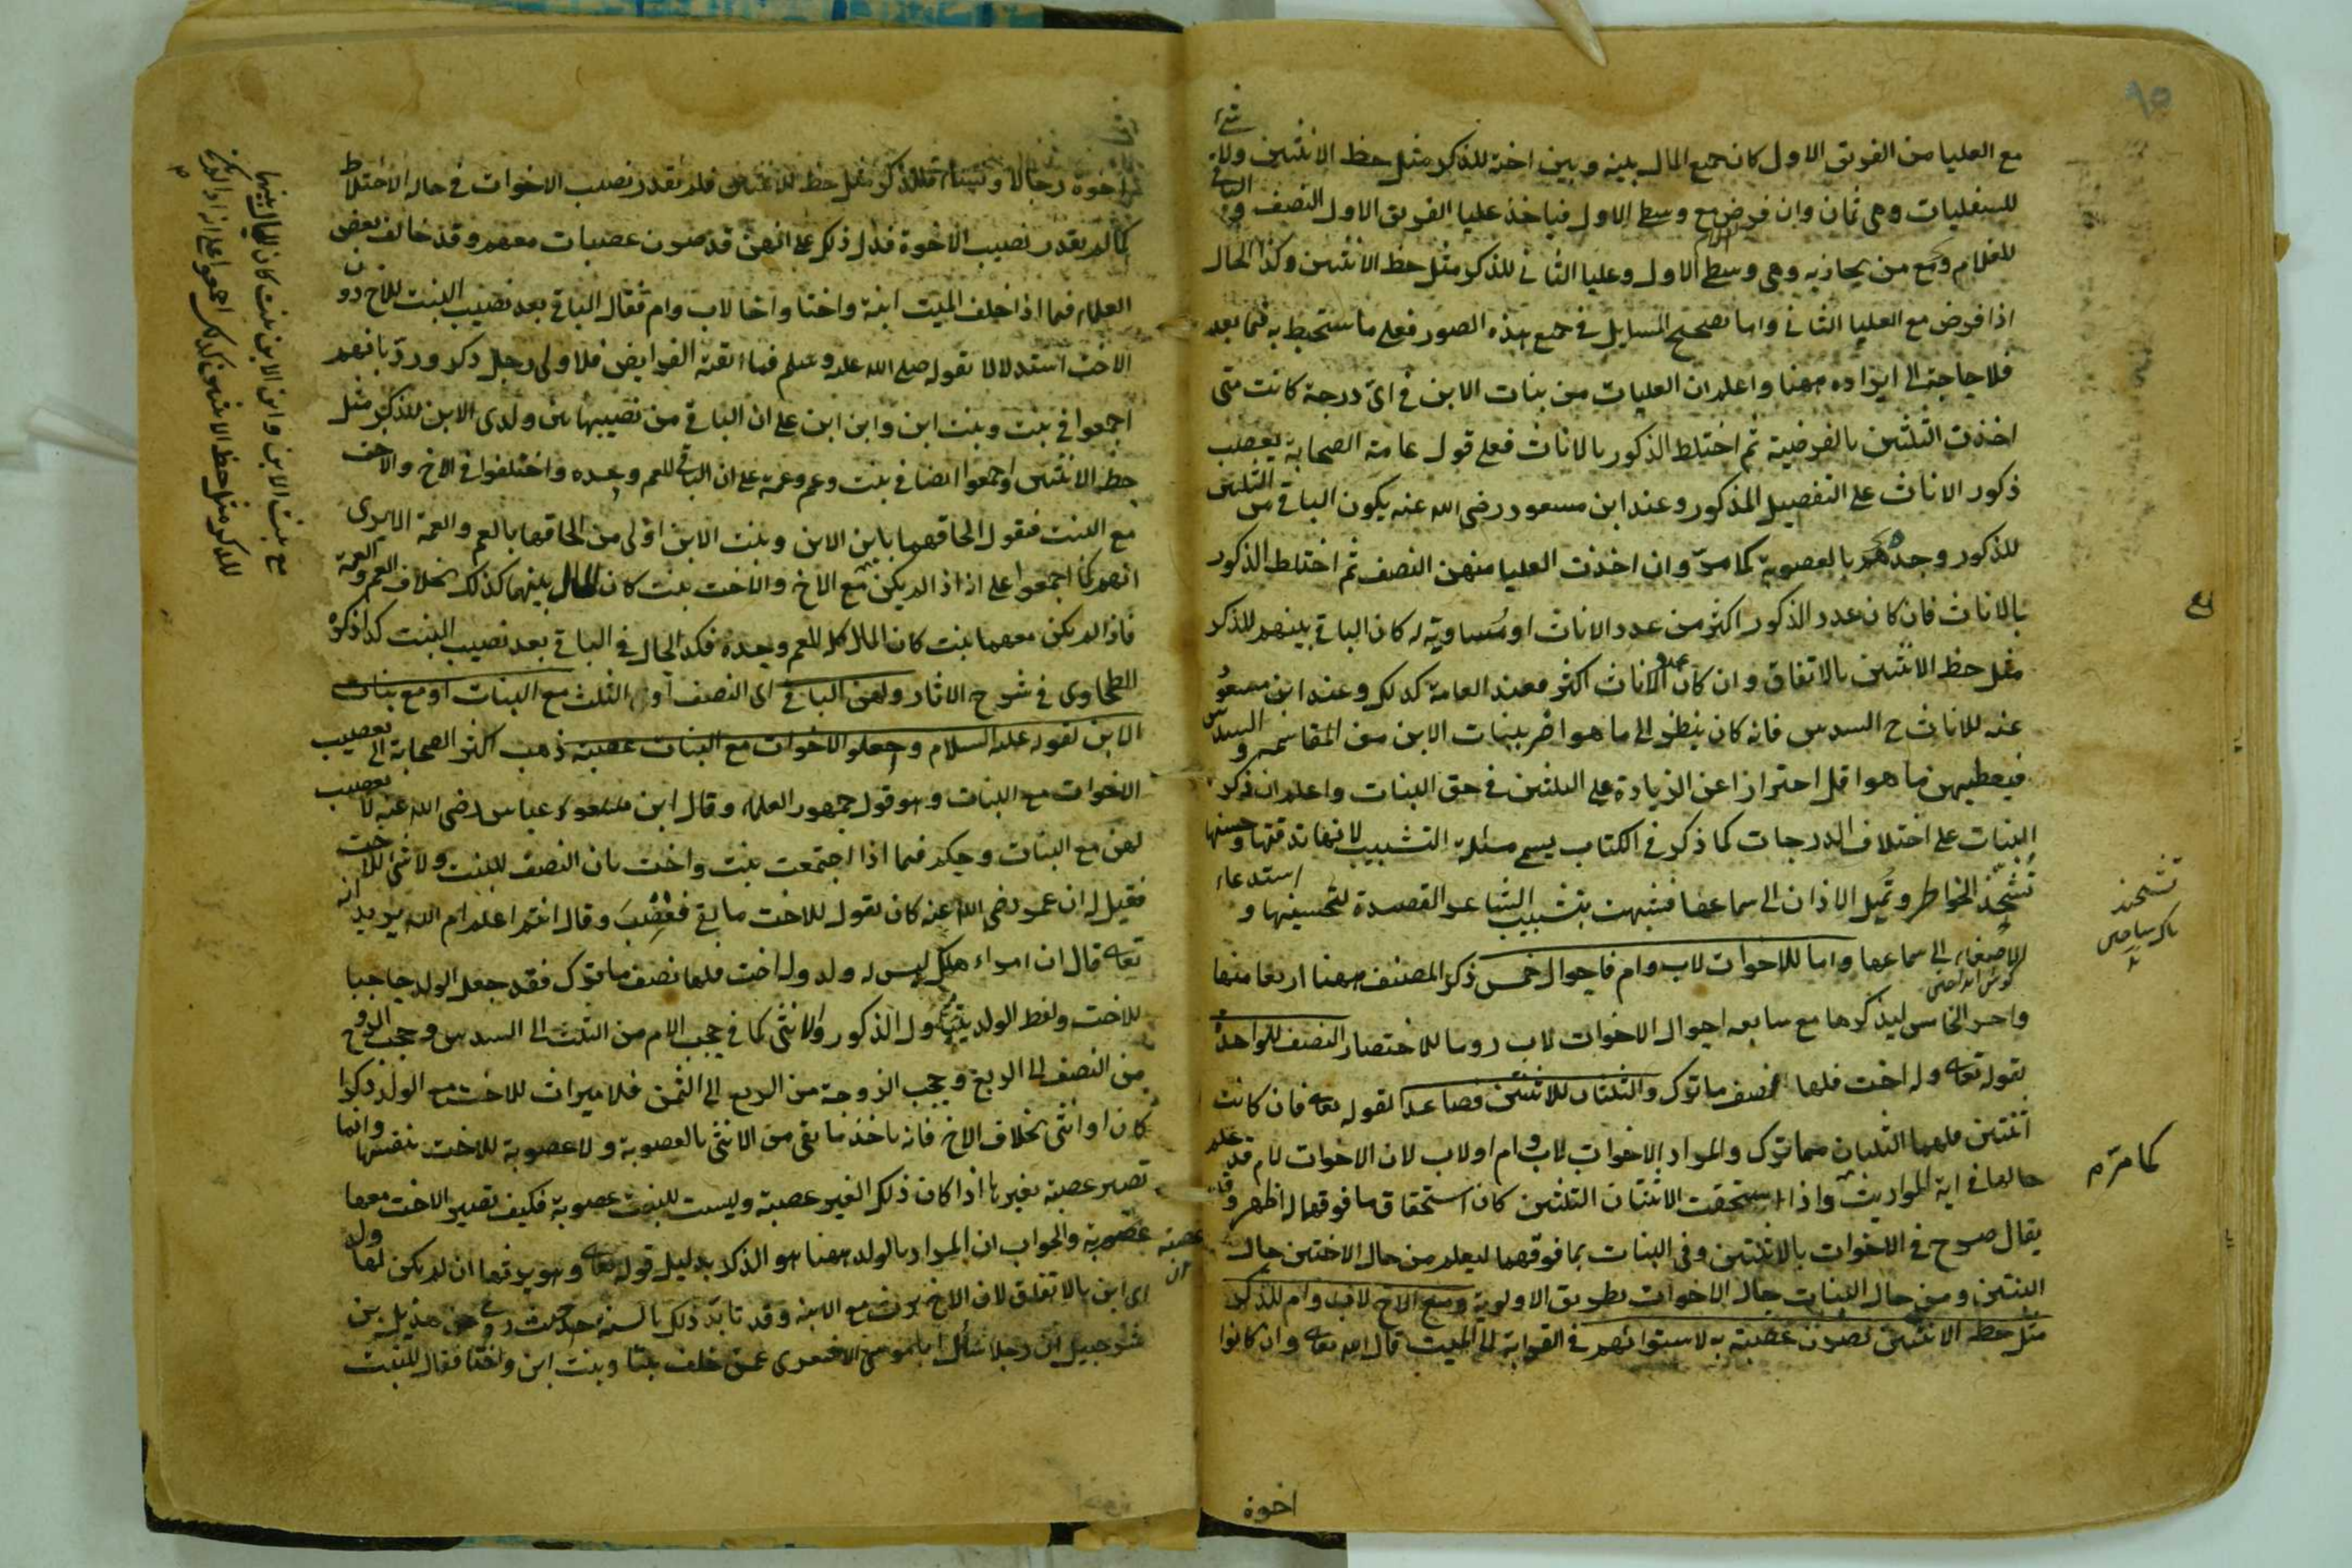 مع العليا من الفريق الاول كان جميع المال بينه وبين اخته للذكر مثل حظ الانثيين ولا شئ
للسفليات وهى ثمان وان فرض مع وسطى الاول فياخذ عليا الفريق الاول النصف والباقى
للغلام ومع من يحاذيه وهى وسطى الاول وعليا الثانى للذكر مثل حظ الانثيين وكذا الحال
اذا فرض مع العليا الثانى واما تصحيح المسايل فى جميع هذه الصور فعلى ما ستحيط به فيما بعد
فلا حاجة الى ايراده ههنا واعلم ان العليات من بنات الابن فى اى درجة كانت متى
اخذت الثلثين بالفرضية ثم اختلط الذكور بالاناث فعلى قول عامة الصحابة يعصب
ذكور الاناث على التفصيل المذكور وعند ابن مسعود رضى الله عنه يكون الباقى من الثلثين
للذكور وحدهم بالعصوبة كما مر وان اخذت العليا منهن النصف ثم اختلط الذكور
بالاناث فان كان عدد الذكور اكثر من عدد الاناث او مساوية له كان الباقى بينهم للذكر
مثل حظ الانثيين بالاتفاق وان كان عدد الاناث اكثر فعند العامة كذلك وعند ابن مسعود
عنه للاناث ح السدس فانه كان ينظر الى ما هو اضر ببنات الابن من المقاسمة والسدس
فيعطيهن ما هو اقل احترازا عن الزيادة على الثلثين فى حق البنات واعلم ان ذكر
البنات على اختلاف الدرجات كما ذكر فى الكتاب يسمى مسئلة التشبيب لانها بدقتها وحسنها
تشحذ الخواطر وتميل الاذان الى سماعها فشبهت بتشبيب الشاعر القصيدة لتحسينها و استدعاء
الاصغاء الى سماعها واما للاخوات لاب وام فاحوال خمس ذكر المصنف ههنا اربعا منها
واخر الخامس ليذكرها مع سابعه احوال الاخوات لاب روما للاختصار النصف للواحدة
بقوله تعالى وله اخت فلها نصف ما ترك والثلثان للاثنتين فصاعدا لقوله تعالى فان كانت
اثنتين فلهما الثلثان مما ترك والمراد الاخوات لاب وام او لاب لان الاخوات لام قد علم
حالها فى اية المواريث واذا استحقت الاثنتان الثلثين كان استحقاق ما فوقهما له اظهر وقد
يقال صرح فى الاخوات بالاثنتين وفى البنات بما فوقهما ليعلم من حال الاختين حال
البنتين ومن حال البنات حال الاخوات بطريق الاولوية ومع الاخ لاب وام للذكر
مثل حظ الانثيين يصرن عصبة به لاستوائهم فى القرابة الى الميت قال الله تعالى وان كانوا
اخوة
تشحذ
كما مر م
اخوة رجالا ونساء فللذكر مثل حظ الانثيين فلم يقدر نصيب الاخوات فى حالة الاختلاط
كما لم يقدر نصيب الاخوة فدل ذلك على انهن قد صرن عصبات معهم وقد خالف بعض
العلماء فيما اذا خلف الميت ابنة واختا واخا لاب وام فقال الباقى بعد نصيب البنت للاخ دون
الاخت استدلالا بقوله صلى الله عليه وسلم فما ابقته الفرايض فلاولى رجل ذكر ورد بانهم
اجمعوا فى بنت وبنت ابن وابن ابن على ان الباقى من نصيبها بين ولدى الابن للذكر مثل
حظ الانثيين واجمعوا ايضا فى بنت وعم وعمة على ان الباقى للعم وحده واختلفوا فى الاخ والاخت
مع البنت فنقول الحاقهما بابن الابن وبنت الابن اولى من الحاقهما بالعم والعمة الا يرى
انهم كما اجمعوا على اذ اذا لم يكن مع الاخ والاخت بنت كان المال بينهما كذلك بخلاف العم والعمة
فاذا لم يكن معهما بنت كان المال كله للعم وحده فكذا الحال فى الباقى بعد نصيب البنت كذا ذكره
الطحاوى فى شرح الاثار ولهن الباقى اى النصف او الثلث مع البنات او مع بنات
الابن لقوله عليه السلام واجعلوا الاخوات مع البنات عصبة ذهب اكثر الصحابة الى تعصيب
الاخوات مع البنات وهو قول جمهور العلماء وقال ابن عباس رضى الله عنه لا تعصيب
لهن مع البنات وحكم فيما اذا اجتمعت بنت واخت بان النصف للبنت ولا شئ للاخت
فقيل له ان عمر رضى الله عنه كان يقول للاخت ما بقى فغضب وقال انتم اعلم ام الله يريد انه
تعالى قال ان امرء هلك ليس له ولد وله اخت فلها نصف ما ترك فقد جعل الولد حاجبا
للاخت ولفظ الولد يتناول الذكور والانثى كما فى حجب الام من الثلث الى السدس وحجب الزوج
من النصف الى الربع وحجب الزوجة من الربع الى الثمن فلا ميراث للاخت مع الولد ذكرا
كان او انثى بخلاف الاخ فانه ياخذ ما بقى من الانثى بالعصوبة ولا عصوبة للاخت بنفسها وانما
تصير عصبة بغيرها اذا كان ذلك الغير عصبة وليست للبنت عصوبة فكيف تصير الاخت معها
عصبة والجواب ان المراد بالولد ههنا هو الذكر بدليل قوله تعالى وهو يرثها ان لم يكن لها ولد
اى ابن بالاتفاق لان الاخ يرث مع الابنة وقد تايد ذلك بالسنة حيث روى عن هذيل بن
شرحبيل ان رجلا سأل ابا موسى الاشعرى عمن خلف بنتا وبنت ابن واختا فقال للبنت
مع بنت الابن وابن الابن بنت كان المال بينهما
للذكر مثل حظ الانثيين كذلك اجمعوا على انه اذا لم يكن